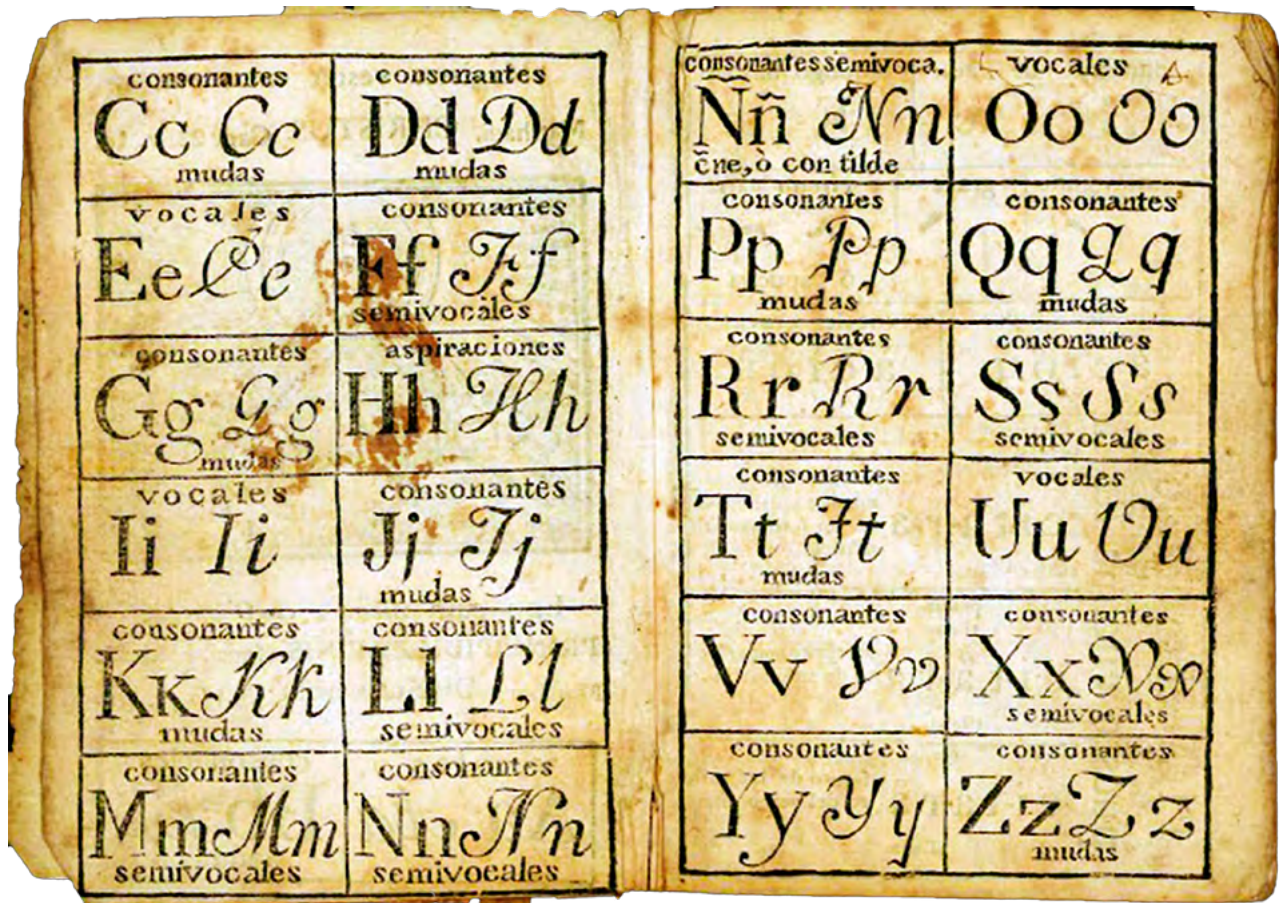 consonantes
Cc Cc
mudas
consonantes
Dd Dd
mudas
vocales
Ee Ee
consonantes
Ff Ff
semivocales
consonantes
Gg Gg
mudas
aspiraciones
Hh Hh
vocales
Ii Ii
consonantes
Jj Jj
mudas
consonantes
Kk Kk
mudas
consonantes
Ll Ll
semivocales
consonantes
Mm Mm
semivocales
consonantes
Nn Nn
semivocales
consonantes semivoca.
Ññ Nn
ẽne, ò con tilde
vocales
Oo Oo
consonantes
Pp Pp
mudas
consonantes
Qq Qq
mudas
consonantes
Rr Rr
semivocales
consonantes
Ss Ss
semivocales
consonantes
Tt Tt
mudas
vocales
Uu Uu
consonantes
Vv Vv
consonantes
Xx Xx
semivocales
consonantes
Yy Yy
consonantes
Zz Zz
mudas